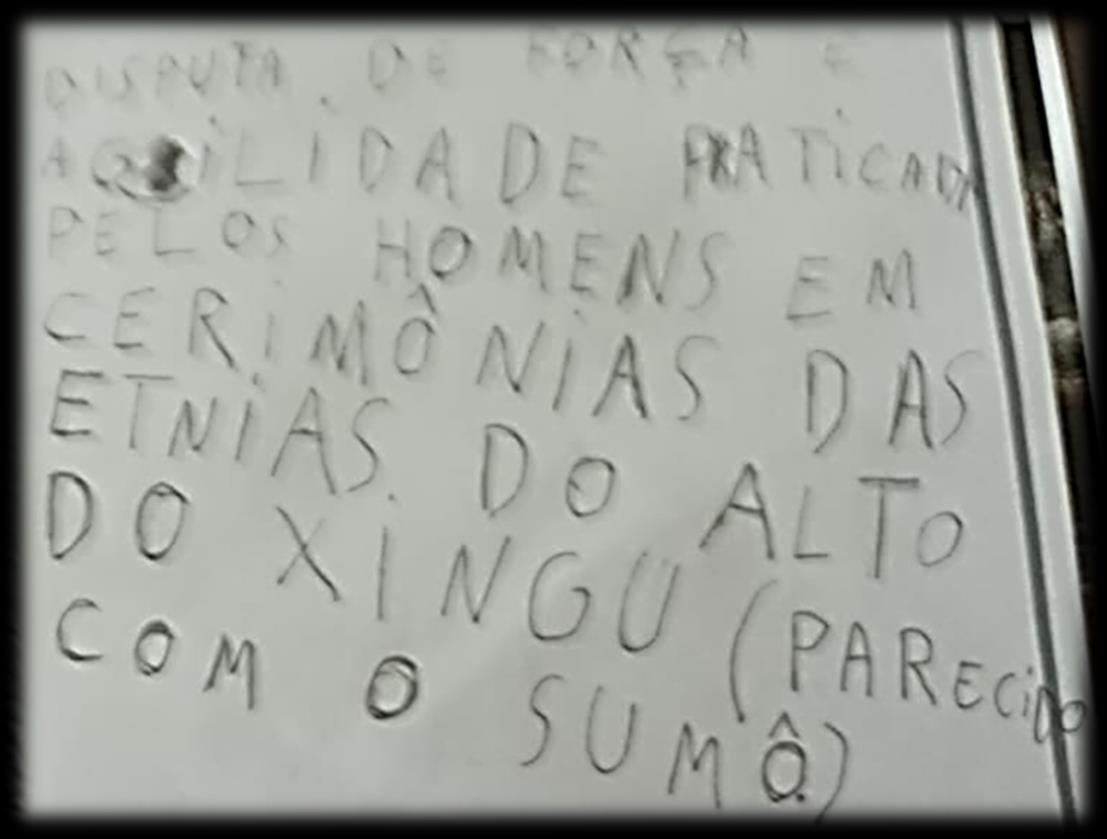 DISPUTA DE FORÇA E
AGILIDADE PRATICADA
PELOS HOMENS EM
CERIMÔNIAS DAS
ETNIAS DO ALTO
DO XINGU (PARECIDO
COM O SUMÔ)